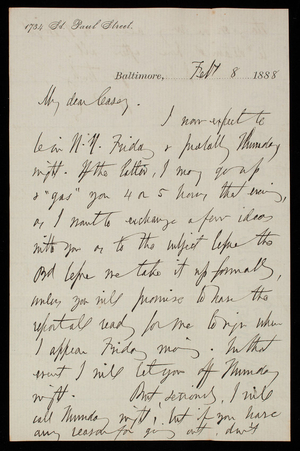 1734 St. Paul Street.
Baltimore, Feby 8 1888
My dear Casey.
I now expect to
be in N.Y. Friday & probably Thursday
night. If the latter, I may go up
& "gas" you 4 or 5 hours that evening,
as I want to exchange a few ideas
with you as to the subject before the
Bd before we take it up formally,
unless you will promise to have the
report all ready for me to sign when
I appear Friday morning. In that
event I will let you off Thursday
night. But seriously, I will
call Thursday night, but if you have
any reason for going out don't